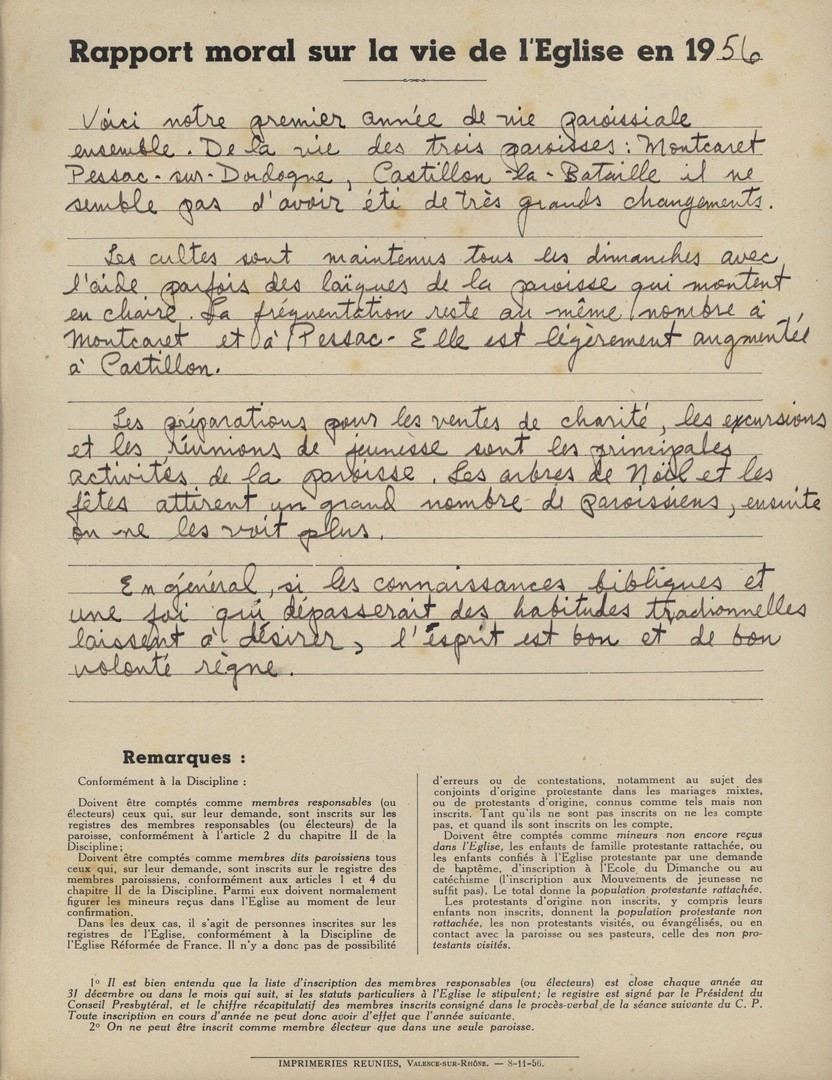 Rapport moral sur la vie de l'Eglise en 1956
Voici notre premier année de vie paroissiale
ensemble. De la vie des trois paroisses : Montcaret
Pessac-sur-Dordogne, Castillon-la-Bataille il ne
semble pas d'avoir été de très grands changements.
Les cultes sont maintenus tous les dimanches avec
l'aide parfois des laïques de la paroisse qui montent
en chaire. La fréquentation reste au même nombre à
Montcaret et à Pessac - Elle est légèrement augmentée
à Castillon.
Les préparations pour les ventes de charité, les excursions
et les réunions de jeunesse sont les principales
activités de la paroisse. Les arbres de Noël et les
fêtes attirent un grand nombre de paroissiens, ensuite
on ne les voit plus.
En général, si les connaissances bibliques et
une foi qui dépasserait des habitudes tradionnelles
laissent à désirer, l'esprit est bon et de bon
volonté règne.
Remarques :
Conformément à la Discipline :
Doivent être comptés comme membres responsables (ou
électeurs) ceux qui, sur leur demande, sont inscrits sur les
registres des membres responsables (ou électeurs) de la
paroisse, conformément à l'article 2 du chapitre II de la
Discipline ;
Doivent être comptés comme membres dits paroissiens tous
ceux qui, sur leur demande, sont inscrits sur le registre des
membres paroissiens, conformément aux articles 1 et 4 du
chapitre II de la Discipline. Parmi eux doivent normalement
figurer les mineurs reçus dans l'Eglise au moment de leur
confirmation.
Dans les deux cas, il s'agit de personnes inscrites sur les
registres de l'Eglise, conformément à la Discipline de
l'Eglise Réformée de France. Il n'y a donc pas de possibilité
d'erreurs ou de contestations, notamment au sujet des
conjoints d'origine protestante dans les mariages mixtes,
ou de protestants d'origine, connus comme tels mais non
inscrits. Tant qu'ils ne sont pas inscrits on ne les compte
pas, et quand ils sont inscrits on les compte.
Doivent être comptés comme mineurs non encore reçus
dans l'Eglise, les enfants de famille protestante rattachée, ou
les enfants confiés à l'Eglise protestante par une demande
de baptême, d'inscription à l'Ecole du Dimanche ou au
catéchisme (l'inscription aux Mouvements de jeunesse ne
suffit pas). Le total donne la population protestante rattachée.
Les protestants d'origine non inscrits, y compris leurs
enfants non inscrits, donnent la population protestante non
rattachée, les non protestants visités, ou évangélisés, ou en
contact avec la paroisse ou ses pasteurs, celle des non pro-
testants visités.
1° Il est bien entendu que la liste d'inscription des membres responsables (ou électeurs) est close chaque année au
31 décembre ou dans le mois qui suit, si les statuts particuliers à l'Eglise le stipulent ; le registre est signé par le Président du
Conseil Presbytéral, et le chiffre récapitulatif des membres inscrits consigné dans le procès-verbal de la séance suivante du C. P.
Toute inscription en cours d'année ne peut donc avoir d'effet que l'année suivante.
2° On ne peut être inscrit comme membre électeur que dans une seule paroisse.
IMPRIMERIES REUNIES, VALENCE-SUR-RHÔNE. — 8-11-56.